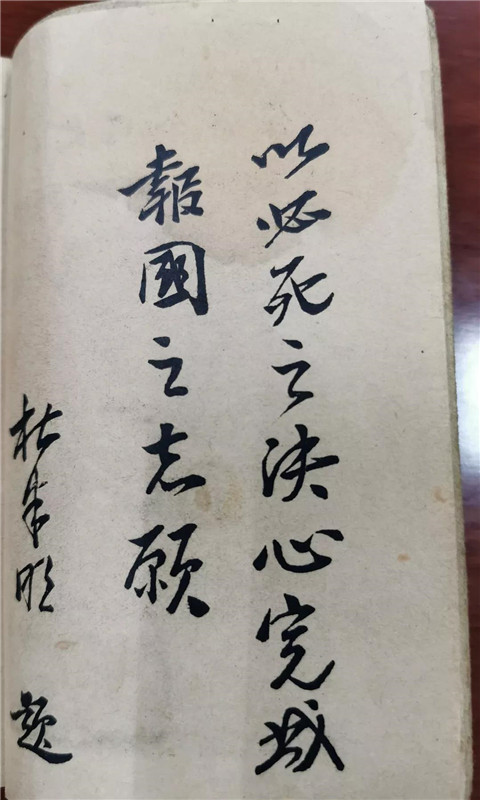 以必死之決心完成
報國之志願
杜聿明 題